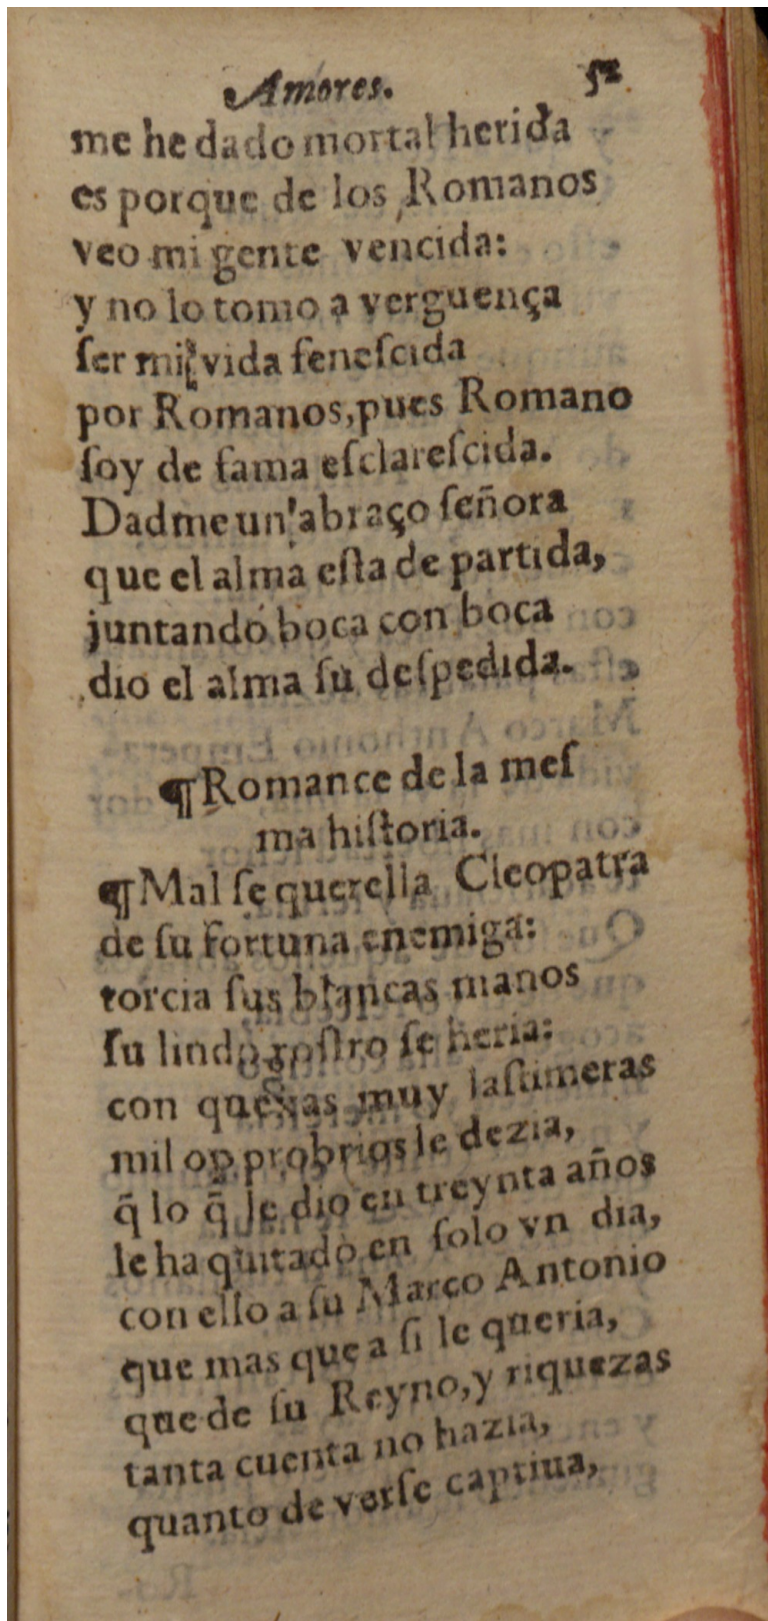 Amores. 52
me he dado mortal herida
es porque de los Romanos
veo mi gente vencida:
y no lo tomo a verguença
ſer mi vida feneſcida
por Romanos, pues Romano
ſoy de fama eſclareſcida.
Dadme un abraço ſeñora
que el alma eſta de partida,
juntando boca con boca
dio el alma ſu deſpedida.
¶Romance de la meſ
ma hiſtoria.
¶Mal ſe querella Cleopatra
de ſu fortuna enemiga:
torcia ſus blancas manos
ſu lindo roſtro ſe heria:
con quexas muy laſtimeras
mil opprobrios le dezia,
q̃ lo q̃ le dio en treynta años
le ha quitado en ſolo vn dia,
con ello a ſu Marco Antonio
que mas que a ſi le queria,
que de ſu Reyno, y riquezas
tanta cuenta no hazia,
quanto de verſe captiua,
Ro-